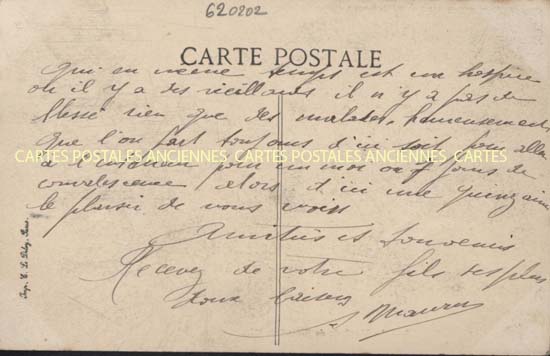 620202
CARTE POSTALE
qui en même temps est un hospice
où il y a des vieillards il n'y a pas de
blessé rien que des malades, heureusement
que l'on part toujours d'ici pour aller
CARTES POSTALES ANCIENNES CARTES POSTALES ANCIENNES CARTES
à pour un mois ou jours de
convalescence alors d'ici une quinzaine
le plaisir de vous voir
Amitiés et souvenirs
Recevez de votre fils ses plus
doux baisers
Maurice
Imp. E. Le Deley, Paris